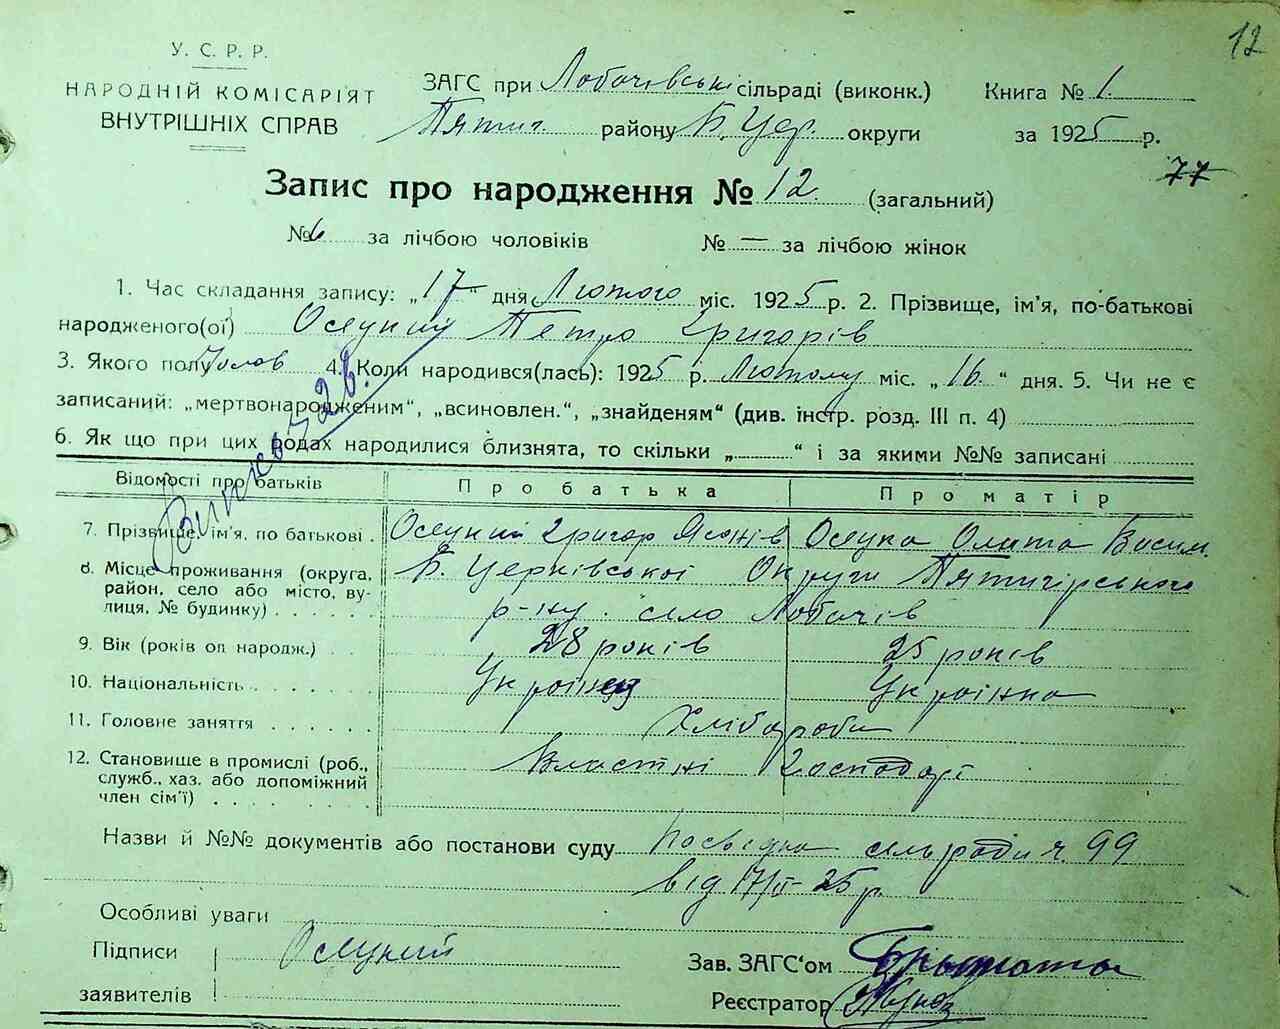 12
У. С. Р. Р.
НАРОДНІЙ КОМІСАРІЯТ
ВНУТРІШНІХ СПРАВ
ЗАГС при Лобачівські сільраді (виконк.) Книга № 1.
Пятиг. району Б. Цер. округи за 1925 р.
77
Запис про народження № 12. (загальний)
№ 6 за лічбою чоловіків № — за лічбою жінок
1. Час складання запису: „17" дня Лютого міс. 1925 р. 2. Прізвище, ім'я, по-батькові
народженого(ої) Петро Григорів
3. Якого полу 4. Коли народився(лась): 1925 р. Лютому міс. „16." дня. 5. Чи не є
записаний: „мертвонародженим", „всиновлен.", „знайденям" (див. інстр. розд. III п. 4)
6. Як що при цих родах народилися близнята, то скільки „ " і за якими №№ записані
Відомості про батьків Про батька Про матір
7. Прізвище, ім'я, по батькові . Григор
8. Місце проживання (округа, Б. Церківської Округи Пятигірського
район, село або місто, ву-
лиця, № будинку) . . . . . р-ну. село Лобачів
9. Вік (років оп народж.) . . 28 років 25 років
10. Національність . . . . . . Українець Українка
11. Головне заняття . . . . . . Хлібороби
12. Становище в промислі (роб., Властні Господарі
служб., хаз. або допоміжний
член сім'ї) . . . . . . . .
Назви й №№ документів або постанови суду Посвідка сельради ч. 99
від 17/II-25 р.
Особливі уваги
Підписи
заявителів
Зав. ЗАГС'ом
Реєстратор